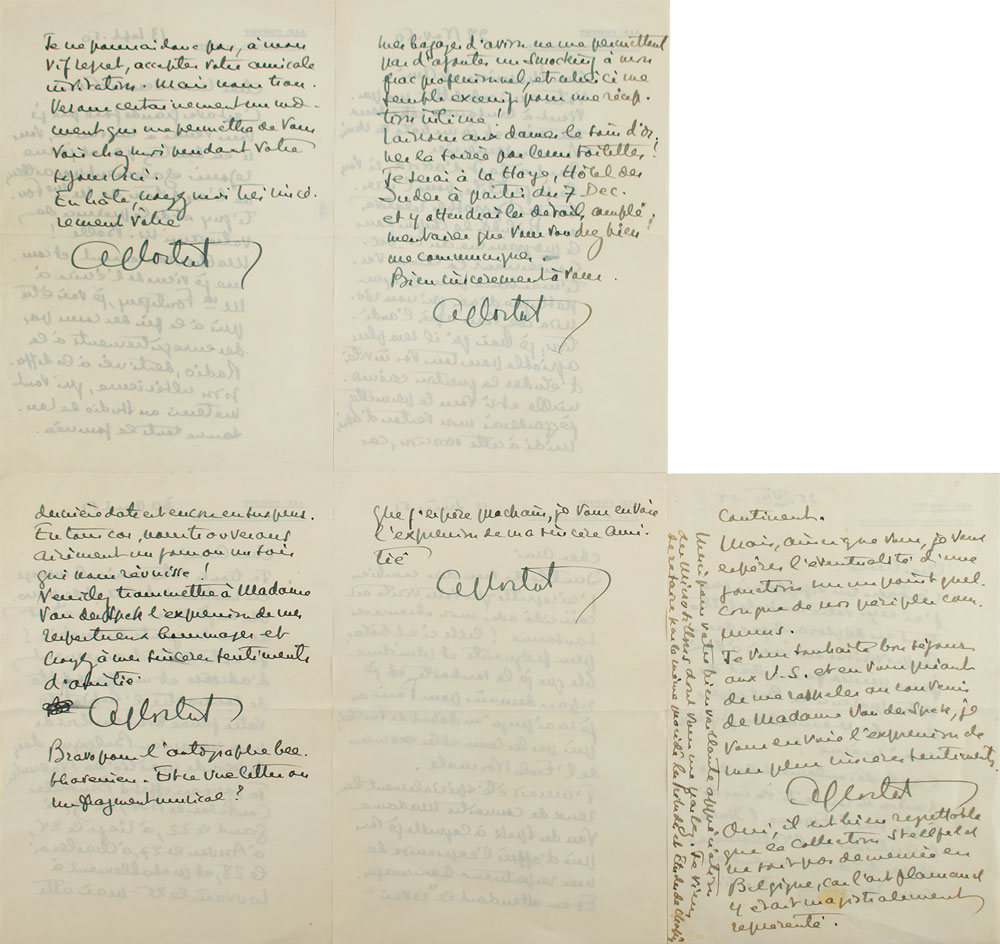 Je ne pourrai donc pas, à mon
vif regret, accepter votre amicale
invitation. Mais nous trou-
verons certainement un mo-
ment qui me permettra de vous
voir chez moi pendant votre
séjour ici.
En hâte, croyez moi très sincè-
rement vôtre
A Cortot
mes bagages d'avion ne me permettent
pas d'ajouter un smocking à mon
frac professionnel, et celui ci me
semble excessif pour une récep-
tion intime!
Laissons aux dames le soin d'or-
ner la soirée par leurs toilettes!
Je serai à la Haye, Hôtel des
Indes à partir du 7 Dec.
et y attendrai les détails complé-
mentaires que vous voudrez bien
me communiquer.
Bien sincèrement à vous.
A Cortot
dernière date est encore en suspens.
En tous cas, nous trouverons
aisément un jour ou un soir
qui nous réunisse!
Veuillez transmettre à Madame
Van der Spek l'expression de mes
respectueux hommages et
croyez à mes sincères sentiments
d'amitié
A Cortot
Bravo pour l'autographe bee-
thovenien. Est ce une lettre ou
un fragment musical?
que j'espère prochain, je vous envoie
l'expression de ma sincère ami-
tié
A Cortot
Continent.
Mais, ainsi que vous, je veux
espérer l'éventualité d'une
jonction sur un point quel-
conque de nos périples com-
muns.
Je vous souhaite bon séjour
aux U.S. et en vous priant
de me rappeler au souvenir
de Madame Van der Spek, je
vous envoie l'expression de
mes plus sincères sentiments.
A Cortot
Oui, il est bien regrettable
que la collection Stellfeld
ne soit pas demeurée en
Belgique, car l'art flamand
y était magistralement
représenté.
Merci pour votre bienveillante appréciation
des Microsillons dont vous me parlez. Je viens
de refaire par le même procédé les Préludes et Etudes de Chopin